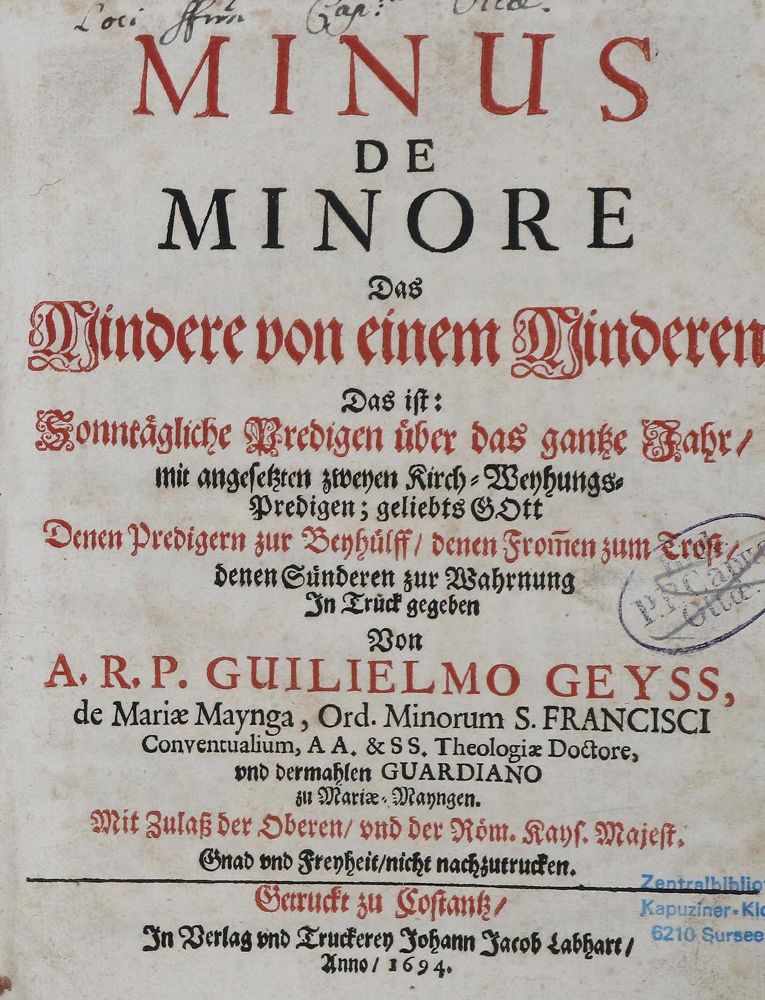 Loci
MINUS
DE
MINORE
Das
Mindere von einem Minderen
Das ist:
Sonntägliche Predigen über das gantze Jahr/
mit angesetzten zweyen Kirch-Weyhungs-
Predigen; geliebts GOtt
Denen Predigern zur Beyhülff/ denen From̅en zum Trost/
denen Sünderen zur Wahrnung
In Truck gegeben
Von
A. R. P. GUILIELMO GEYSS,
de Mariæ Maynga, Ord. Minorum S. FRANCISCI
Conventualium, A A. & S S. Theologiæ Doctore,
vnd dermahlen GUARDIANO
zu Mariæ-Mayngen.
Mit Zulaß der Oberen/ vnd der Röm. Kays. Majest.
Gnad vnd Freyheit/nicht nachzutrucken.
Getruckt zu Costantz/
In Verlag vnd Truckerey Johann Jacob Labhart/
Anno/ 1694.
P.P. Capuc
Zentralbiblio
Kapuziner-Klo
6210 Sursee